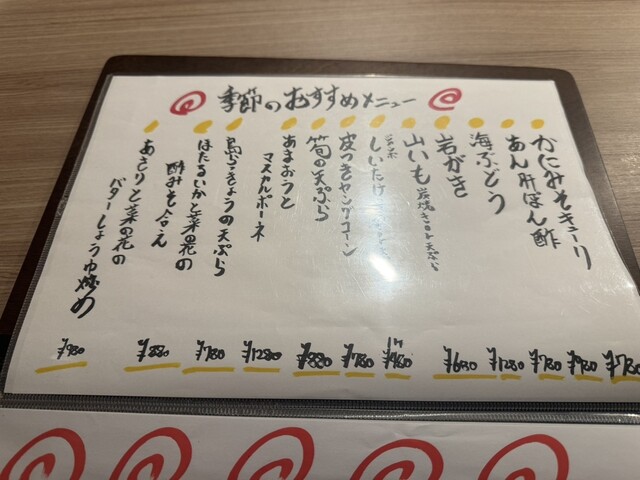 季節のおすすめメニュー
かにみそキューリ
あん肝ぽん酢
海ぶどう
岩がき
山いも 岩焼き or 天ぷら
ジャンボ
しいたけ
皮つきヤングコーン
筍の天ぷら
あまおうと
マスカルポーネ
島らっきょうの天ぷら
ほたるいかと菜の花の
酢みそ合え
あさりと菜の花の
バターしょうゆ炒め
¥780
¥980
¥780
¥1280
¥680
1ケ
¥480
¥780
¥880
¥1280
¥780
¥880
¥980